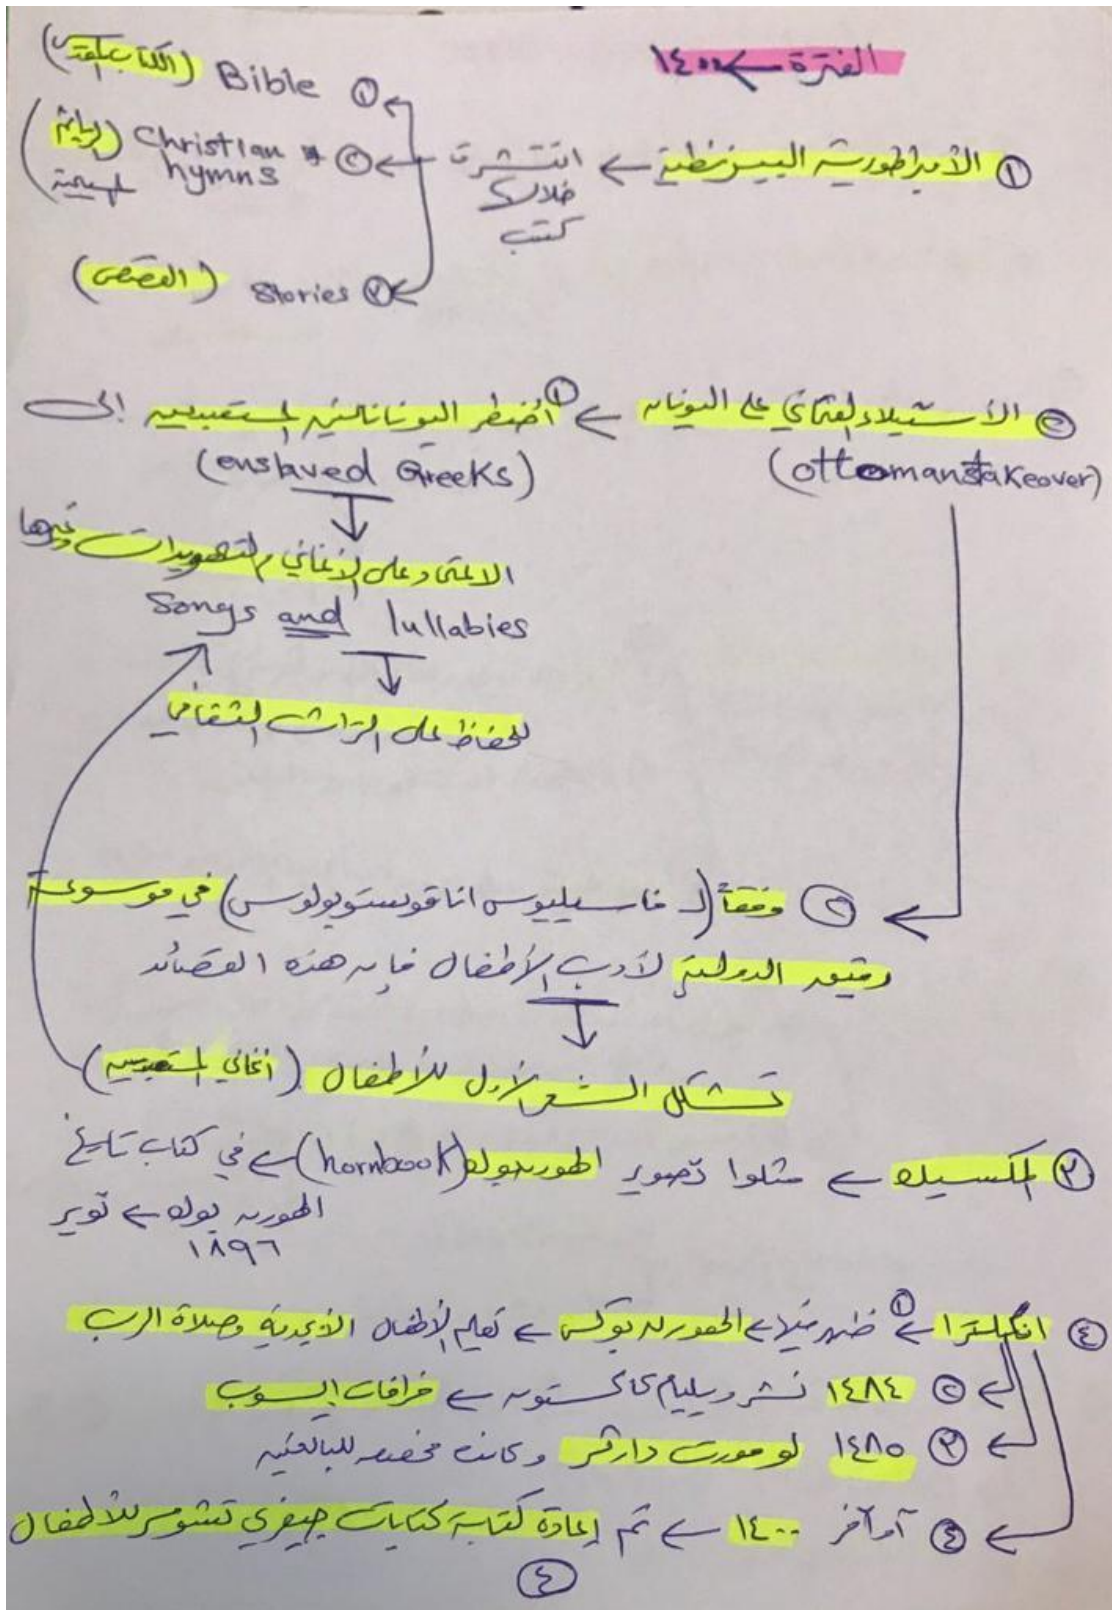 الفترة ← ١٤٠٠
① الأمبراطورية البيزنطية ← انتشرت خلالها كتب
① Bible (الكتاب المقدس)
② Christian hymns (الترانيم المسيحية)
③ Stories (القصص)
② الأستيلاء العثماني على اليونان ← ① أضطر اليونانالنين المستعبدين إلى
(ottomanstakeover)
(enslaved Greeks)
الاعتماد على الأغاني والتهويدات وغيرها
Songs and lullabies
للحفاظ على التراث الثقافي
② وفقاً (لـ فاسيليوس اناقوستوبولوس) في موسوعة
رفيق الدولية لأدب الأطفال فإن هذه القصائد
تشكل الشعر الأول للأطفال (أغاني المستعبدين)
③ المكسيك ← مثلوا تصوير الهورنبوك (hornbook) ← في كتاب تاريخ
الهورن بوك ← توير
١٨٩٦
④ انكلترا ← ① ظهر ← الهورن بوكس ← تعليم الأطفال الأبجدية وصلاة الرب
② ١٤٨٤ نشر ويليام كاكستون ← خرافات إيسوب
③ ١٤٨٥ لو مورت دارثر وكانت مخصصه للبالغين
④ أواخر ١٤٠٠ ← تم إعادة كتابة كتابات جيفري تشوسر للأطفال
④